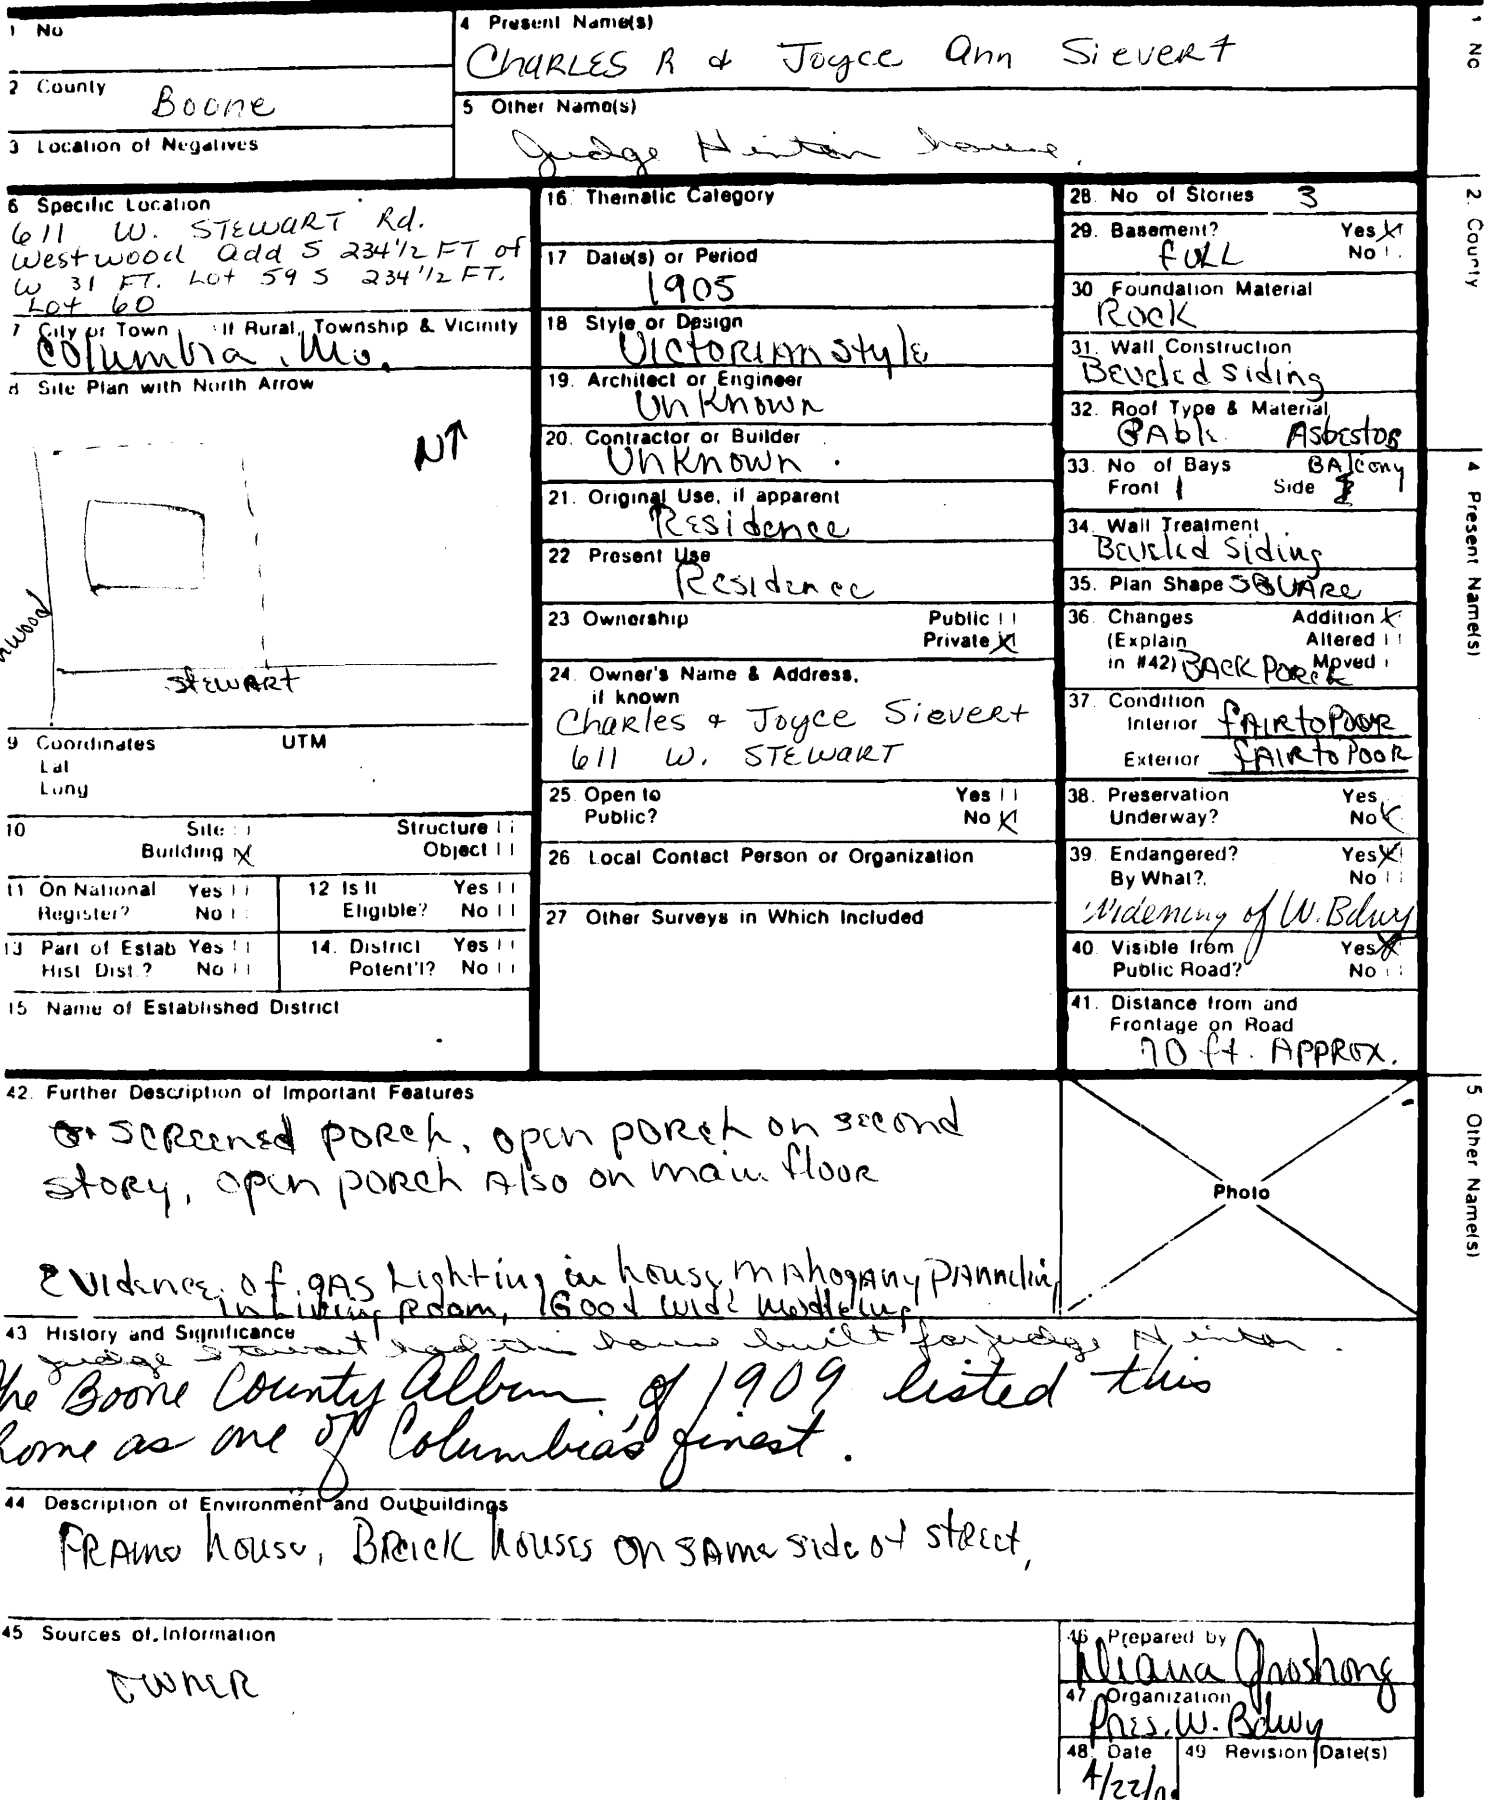 1 No
4 Present Name(s)
CHARLES R & Joyce Ann Sievert
2 County
Boone
5 Other Name(s)
Judge Hinton house.
3 Location of Negatives
6 Specific Location
611 W. STEWART Rd.
Westwood Add S 234 1/2 FT of
W 31 FT. Lot 59 S 234 1/2 FT.
Lot 60
7 City or Town If Rural, Township & Vicinity
Columbia, Mo.
8 Site Plan with North Arrow
N↑
STEWART
9 Coordinates UTM
Lat
Long
10 Site
Structure
Building X
Object
11 On National Register? Yes No
12 Is It Eligible? Yes No
13 Part of Estab Hist Dist.? Yes No
14. District Potent'l? Yes No
15 Name of Established District
16. Thematic Category
17 Date(s) or Period
1905
18 Style or Design
VICTORIAN style
19. Architect or Engineer
UnKnown
20. Contractor or Builder
UnKnown.
21. Original Use, if apparent
Residence
22 Present Use
Residence
23 Ownership Public
Private X
24. Owner's Name & Address,
if known
Charles & Joyce Sievert
611 W. STEWART
25. Open to Yes
Public? No X
26. Local Contact Person or Organization
27 Other Surveys in Which Included
28. No of Stories 3
29. Basement? Yes X
full No
30 Foundation Material
Rock
31. Wall Construction
Beveled siding
32. Roof Type & Material
GAble Asbestos
33. No. of Bays BAlcony
Front 1 Side
34. Wall Treatment
Beveled Siding
35. Plan Shape SQUARE
36. Changes Addition X
(Explain Altered
in #42) Moved
BACK PORCH
37. Condition
Interior fAIR to PooR
Exterior fAIR to PooR
38. Preservation Yes
Underway? No X
39. Endangered? Yes X
By What? No
Widening of W. Bdwy
40. Visible from Yes X
Public Road? No
41. Distance from and
Frontage on Road
70 ft. APPROX.
42. Further Description of Important Features
SCREENED PORCH, open PORCH on second
story, open PORCH Also on main floor
Evidence of gAs Lighting in house, mAhogAny
in Living Room, Good wide
Photo
43 History and Significance
Judge Stewart had this house built for Judge Hinton.
The Boone County Album of 1909 listed this
home as one of Columbia's finest.
44 Description of Environment and Outbuildings
FRAme house, BRICK houses on sAme side of street,
45 Sources of Information
OWNER
46 Prepared by
Groshong
47 Organization
Pres. W. Bdwy
48. Date
4/22/
49 Revision Date(s)
1 No
2. County
4 Present Name(s)
5 Other Name(s)